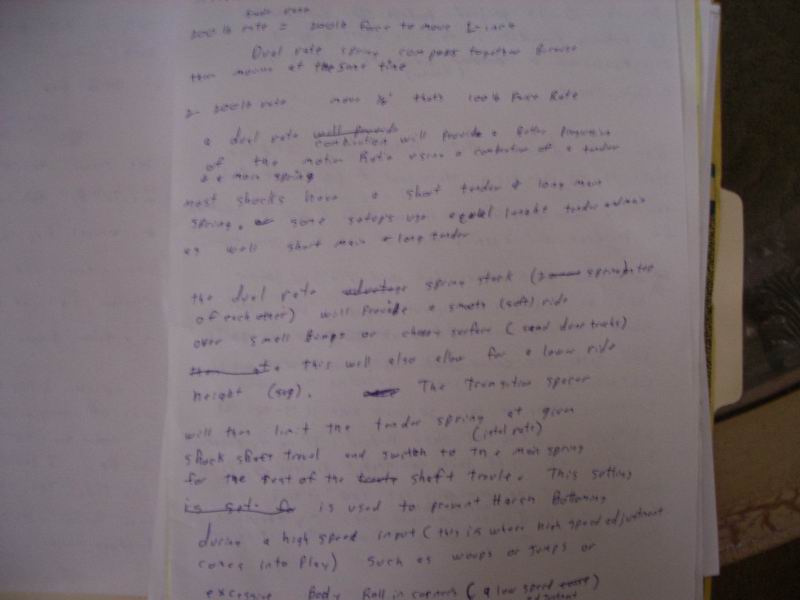 Dual rate
200 lb rate = 200 lb Force to move 1 inch
Dual rate spring compass together
than moving at the same time
2 - 200 lb rate move ½" thats 100 lb Force Rate
a dual rate well provide
combination will provide a Better Progression
of the motion Ratio using a combination of a tender
& a main spring
most shocks have a short tender & long main
spring. some setup's use equal lenght tender and main
as well short main & long tender
the dual rate advantage spring stack ( springs on top
of each other) will provide a smoth (soft) ride
over small Bumps or choppy surface ( sand dune tracks)
this will also alow for a lower ride
height (sag). The Transition spacer
will then limit the tender spring at given
(intal rate)
shock shaft travel and switch to the main spring
for the rest of the shaft travle. This setting
is set is used to prevent Harsh Bottoming
during a high speed input (this is where high speed adjustment
comes into play) such as woops or Jumps or
excessive Body Roll in corners ( a low speed )
adjustment